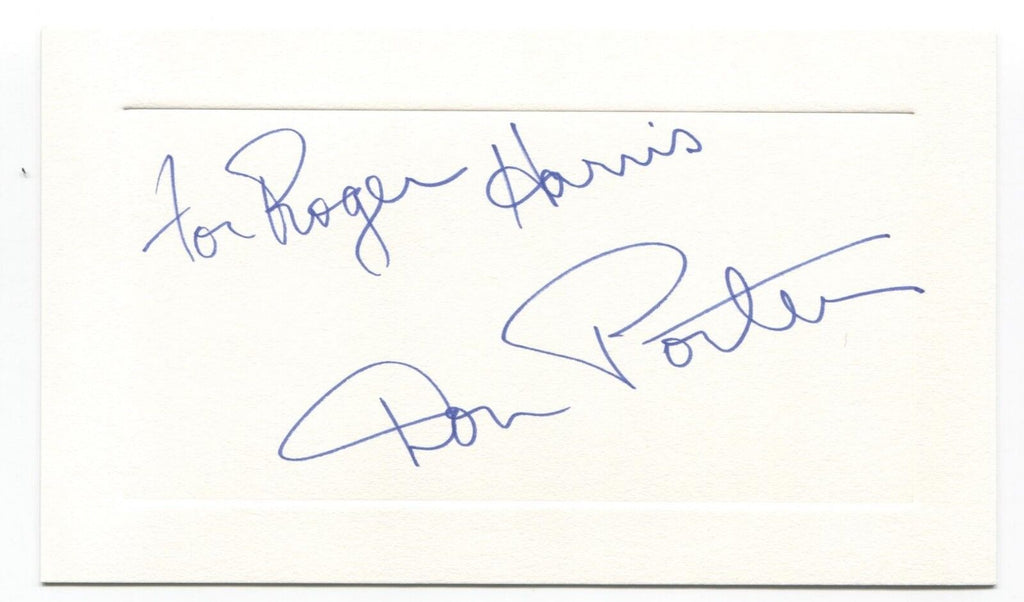 For Roger Harris
Don Porter